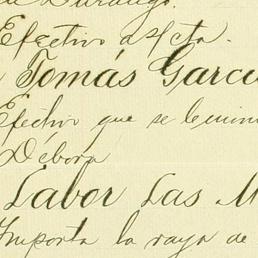 de Durango.
Efectivo a/cta.
Tomás Garcí
Efectivo que se le mini
Debora
Labor Las M
Importa la raya de